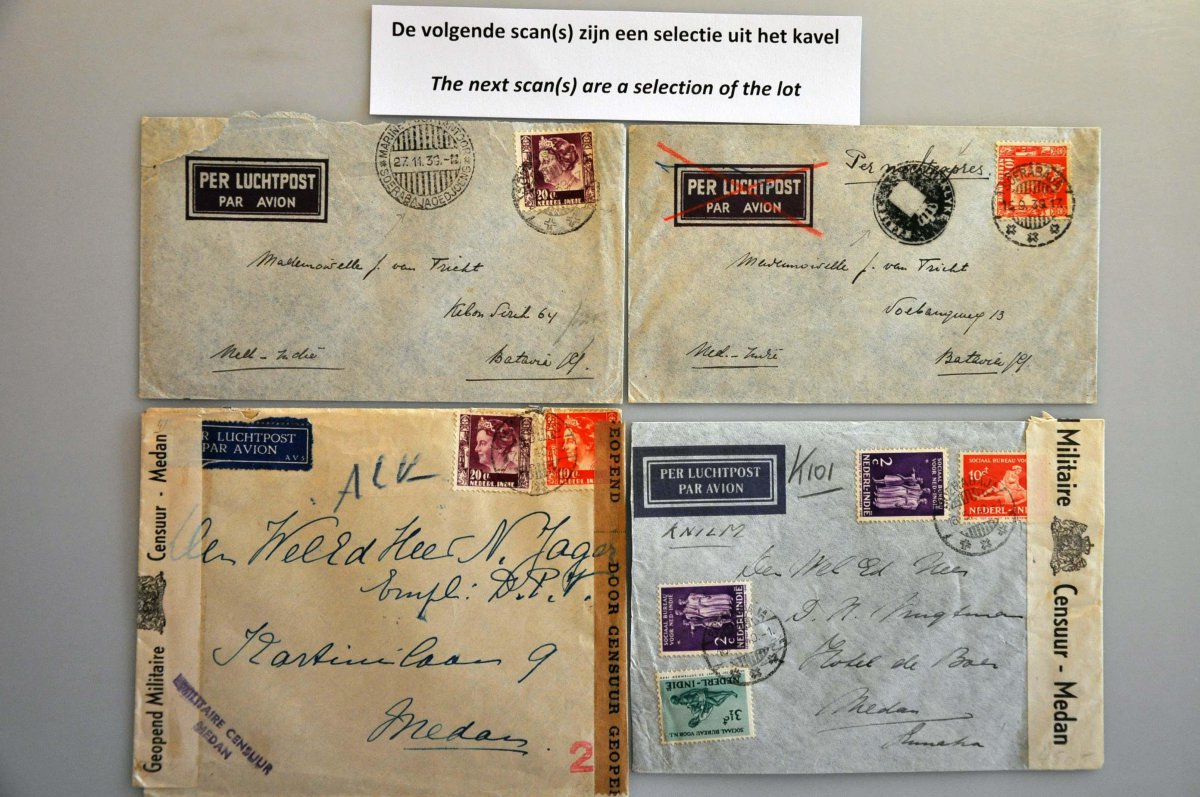 De volgende scan(s) zijn een selectie uit het kavel
The next scan(s) are a selection of the lot
PER LUCHTPOST
PAR AVION
27.11.39.-
SOERABAJAOEDJOENG
20 ct
NEDERL. INDIË
Mademoiselle J. van Tricht
Kebon Sirih 64
Ned-Indië
Batavia
PER LUCHTPOST
PAR AVION
Per
Mademoiselle J. van Tricht
13
Ned-Indië
Batavia
R LUCHTPOST
PAR AVION
AVS
20 ct
10 ct
Den WelEd Heer N. Jager
Empl: D.P.V.
Kartinilaan 9
Medan
Geopend Militaire Censuur - Medan
MILITAIRE CENSUUR
MEDAN
2
EOPEND DOOR CENSUUR GEOPE
PER LUCHTPOST
PAR AVION
K101
KNILM
SOCIAAL BUREAU
VOOR NED-INDIË
2 c
NEDERL-INDIË
SOCIAAL BUREAU VO
10 ct
NEDERL-IN
Den Wel Ed Heer
Hotel de Boer
Medan
Sumatra
SOCIAAL BUREAU
VOOR NED-INDIË
2 c
NEDERL-INDIË
NEDERL-INDIË
3½ ct
SOCIAAL BUREAU VOOR N.I.
d Militaire Censuur - Medan